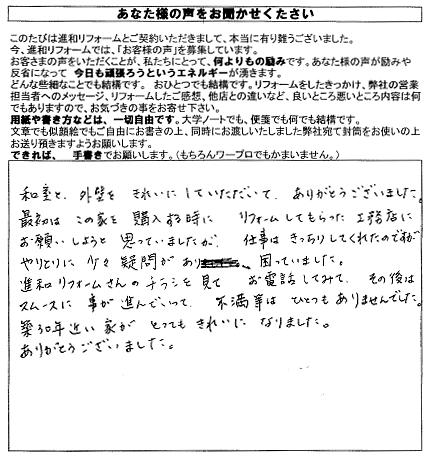 あなた様の声をお聞かせください
このたびは進和リフォームとご契約いただきまして、本当に有り難うございました。
今、進和リフォームでは、「お客様の声」を募集しています。
お客さまの声をいただくことが、私たちにとって、何よりもの励みです。あなた様の声が励みや
反省になって 今日も頑張ろうというエネルギーが湧きます。
どんな些細なことでも結構です。 おひとつでも結構です。リフォームをしたきっかけ、弊社の営業
担当者へのメッセージ、リフォームしたご感想、他店との違いなど、良いところ悪いところ内容は何
でもありますので、お気づきの事をお寄せ下さい。
用紙や書き方などは、一切自由です。大学ノートでも、便箋でも何でも結構です。
文章でも似顔絵でもご自由にお書きの上、同時にお渡しいたしました弊社宛て封筒をお使いの上
お送り頂きますようお願いします。
できれば、 手書きでお願いします。(もちろんワープロでもかまいません。)
和室と、外壁を きれいにしていただいて、ありがとうございました。
最初は この家を 購入する時に リフォームしてもらった 工務店に
お願いしようと 思っていましたが、 仕事は きっちりしてくれたのですが
やりとりに 少々 疑問があり 困っていました。
進和リフォームさんの チラシを見て お電話してみて、その後は
スムースに 事が進んでいって、 不満等は ひとつも ありませんでした。
築30年近い 家が とっても きれいに なりました。
ありがとうございました。